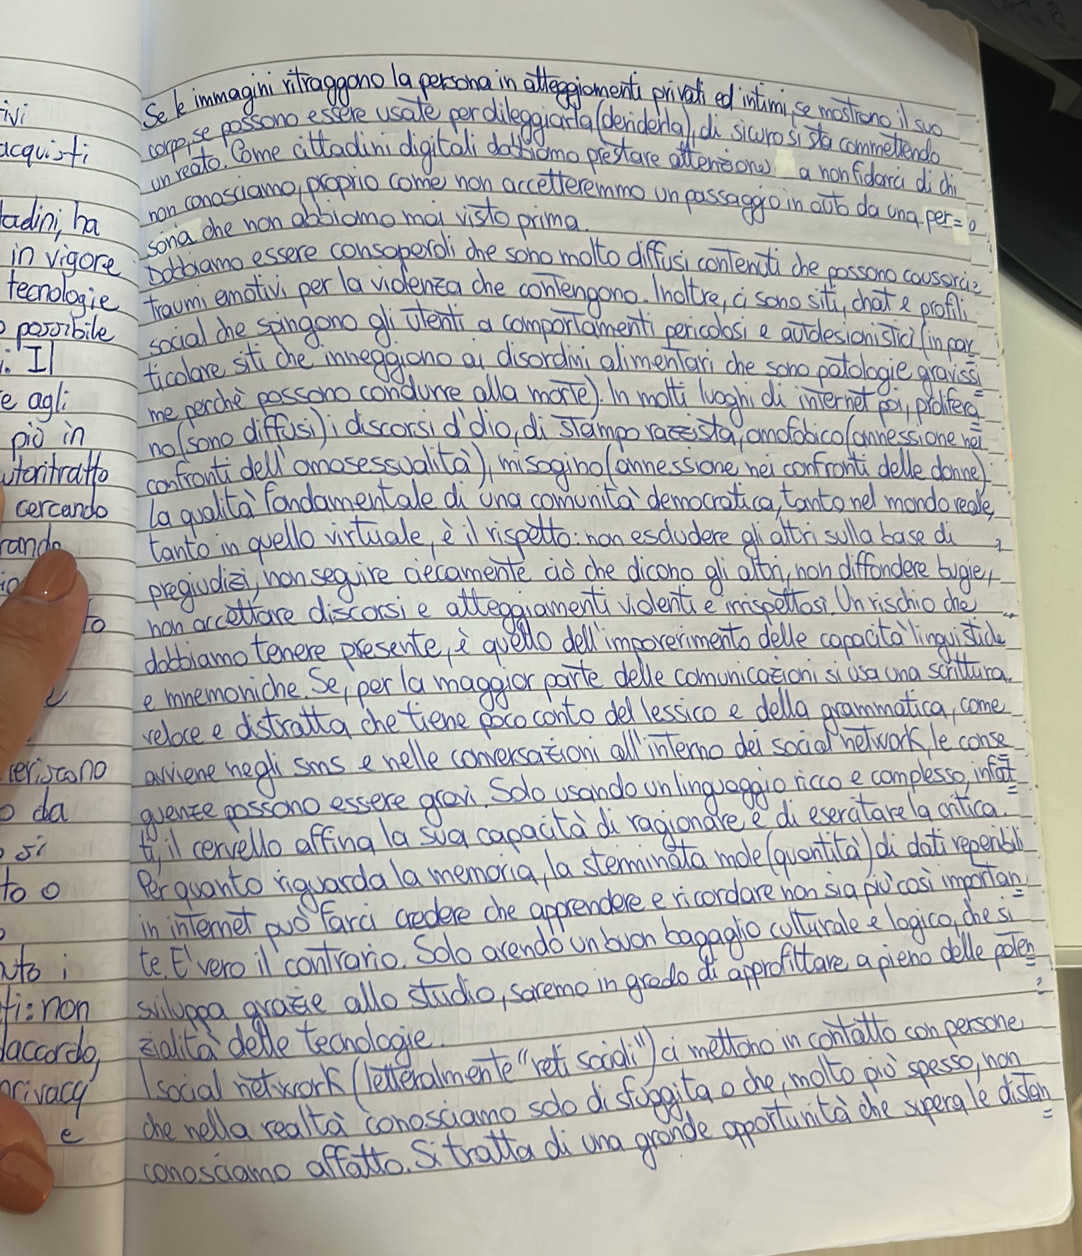 ivi
acquisti
tadini, ha
in vigore
tecnologie
o possibile
i. Il
e agli
più in
utoritratto
cercando
rando
to
feriscono
o da
o si
to o
uto i
ti: non
daccordo,
privacy
e
Se le immagini ritraggono la persona in atteggiamenti privati ed intimi, se mostrano il suo
corpo, se possono essere usate per dileggiarla (deriderla), di sicuro si sta commettendo
un reato. Come cittadini digitali dobbiamo prestare attenzione a non fidarci di chi
non conosciamo, proprio come non accetteremmo un passaggio in auto da una per=
sona che non abbiamo mai visto prima.
Dobbiamo essere consapevoli che sono molto diffusi contenuti che possono causarci
traumi emotivi per la violenza che contengono. Inoltre, ci sono siti, chat e profili
social che spingono gli utenti a comportamenti pericolosi e autolesionistici (in par
ticolare siti che inneggiano ai disordini alimentari che sono patologie gravissi=
me perché possono condurre alla morte). In molti luoghi di internet poi, prolifera=
no (sono diffusi) i discorsi d'dio, di stampo razzista, omofobico (annessione nei
confronti dell'omosessualità), misogino (annessione nei confronti delle donne).
La qualità fondamentale di una comunità democratica, tanto nel mondo reale,
tanto in quello virtuale, è il rispetto: non escludere gli altri sulla base di
pregiudizi, non seguire ciecamente ciò che dicono gli altri, non diffondere bugie,
non accettare discorsi e atteggiamenti violenti e irrispettosi. Un rischio che
dobbiamo tenere presente, è quello dell'impoverimento delle capacità linguistiche
e mnemoniche. Se, per la maggior parte delle comunicazioni si usa una scrittura
veloce e distratta che tiene poco conto del lessico e della grammatica, come
avviene negli sms e nelle conversazioni all'interno dei social network, le conse
guenze possono essere gravi. Solo usando un linguaggio ricco e complesso, infat=
ti, il cervello affina la sua capacità di ragionare e di esercitare la critica.
Per quanto riguarda la memoria, la sterminata mole (quantità) di dati reperibili
in internet può farci credere che apprendere e ricordare non sia più così importan=
te. E' vero il contrario. Solo avendo un buon bagaglio culturale e logico, che si
sviluppa grazie allo studio, saremo in grado di approfittare a pieno delle poten
zialità delle tecnologie.
I social network (letteralmente "reti sociali") ci mettono in contatto con persone
che nella realtà conosciamo solo di sfuggita o che, molto più spesso, non
conosciamo affatto. Si tratta di una grande opportunità che supera le distan=